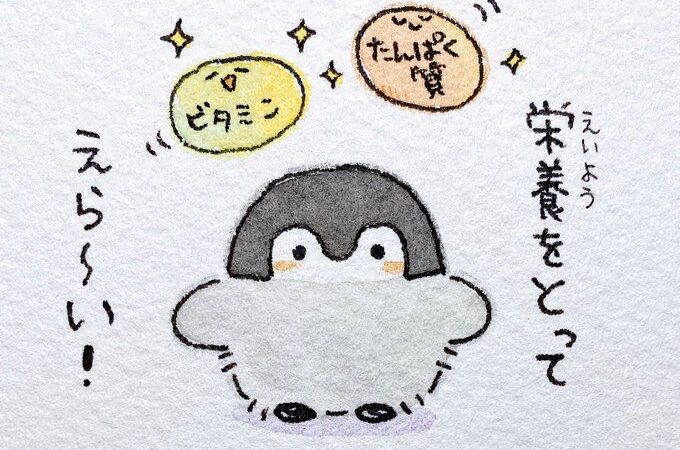 えいよう
栄養をとって
えら〜い!
ビタミン
たんぱく
質